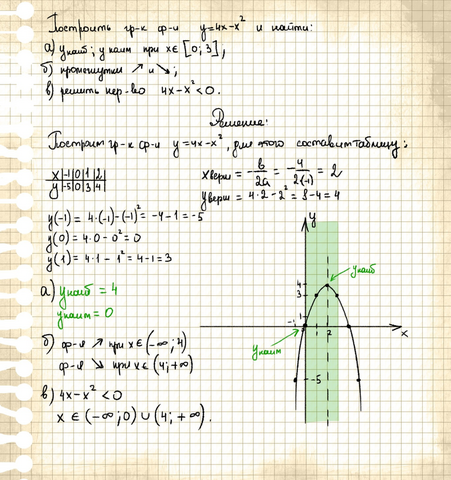 Построить гр-к ф-и y=4x-x² и найти:
а) yнаиб; yнаим при x∈[0;3];
б) промежутки ↗ и ↘;
в) решить нер-во 4x-x²<0.
Решение:
Построим гр-к ф-и y=4x-x², для этого составим таблицу:
x|-1|0|1|2
y|-5|0|3|4
xверш = -b/2a = -4/2(-1) = 2
yверш = 4·2-2² = 8-4=4
y(-1) = 4·(-1)-(-1)² = -4-1 = -5
y(0) = 4·0-0² = 0
y(1) = 4·1-1² = 4-1 = 3
а) yнаиб = 4
yнаим = 0
б) ф-я ↗ при x∈(-∞;4)
ф-я ↘ при x∈(4;+∞)
в) 4x-x²<0
x∈(-∞;0)∪(4;+∞).
y
yнаиб
4
3
1
-1
1
2
x
yнаим
-5